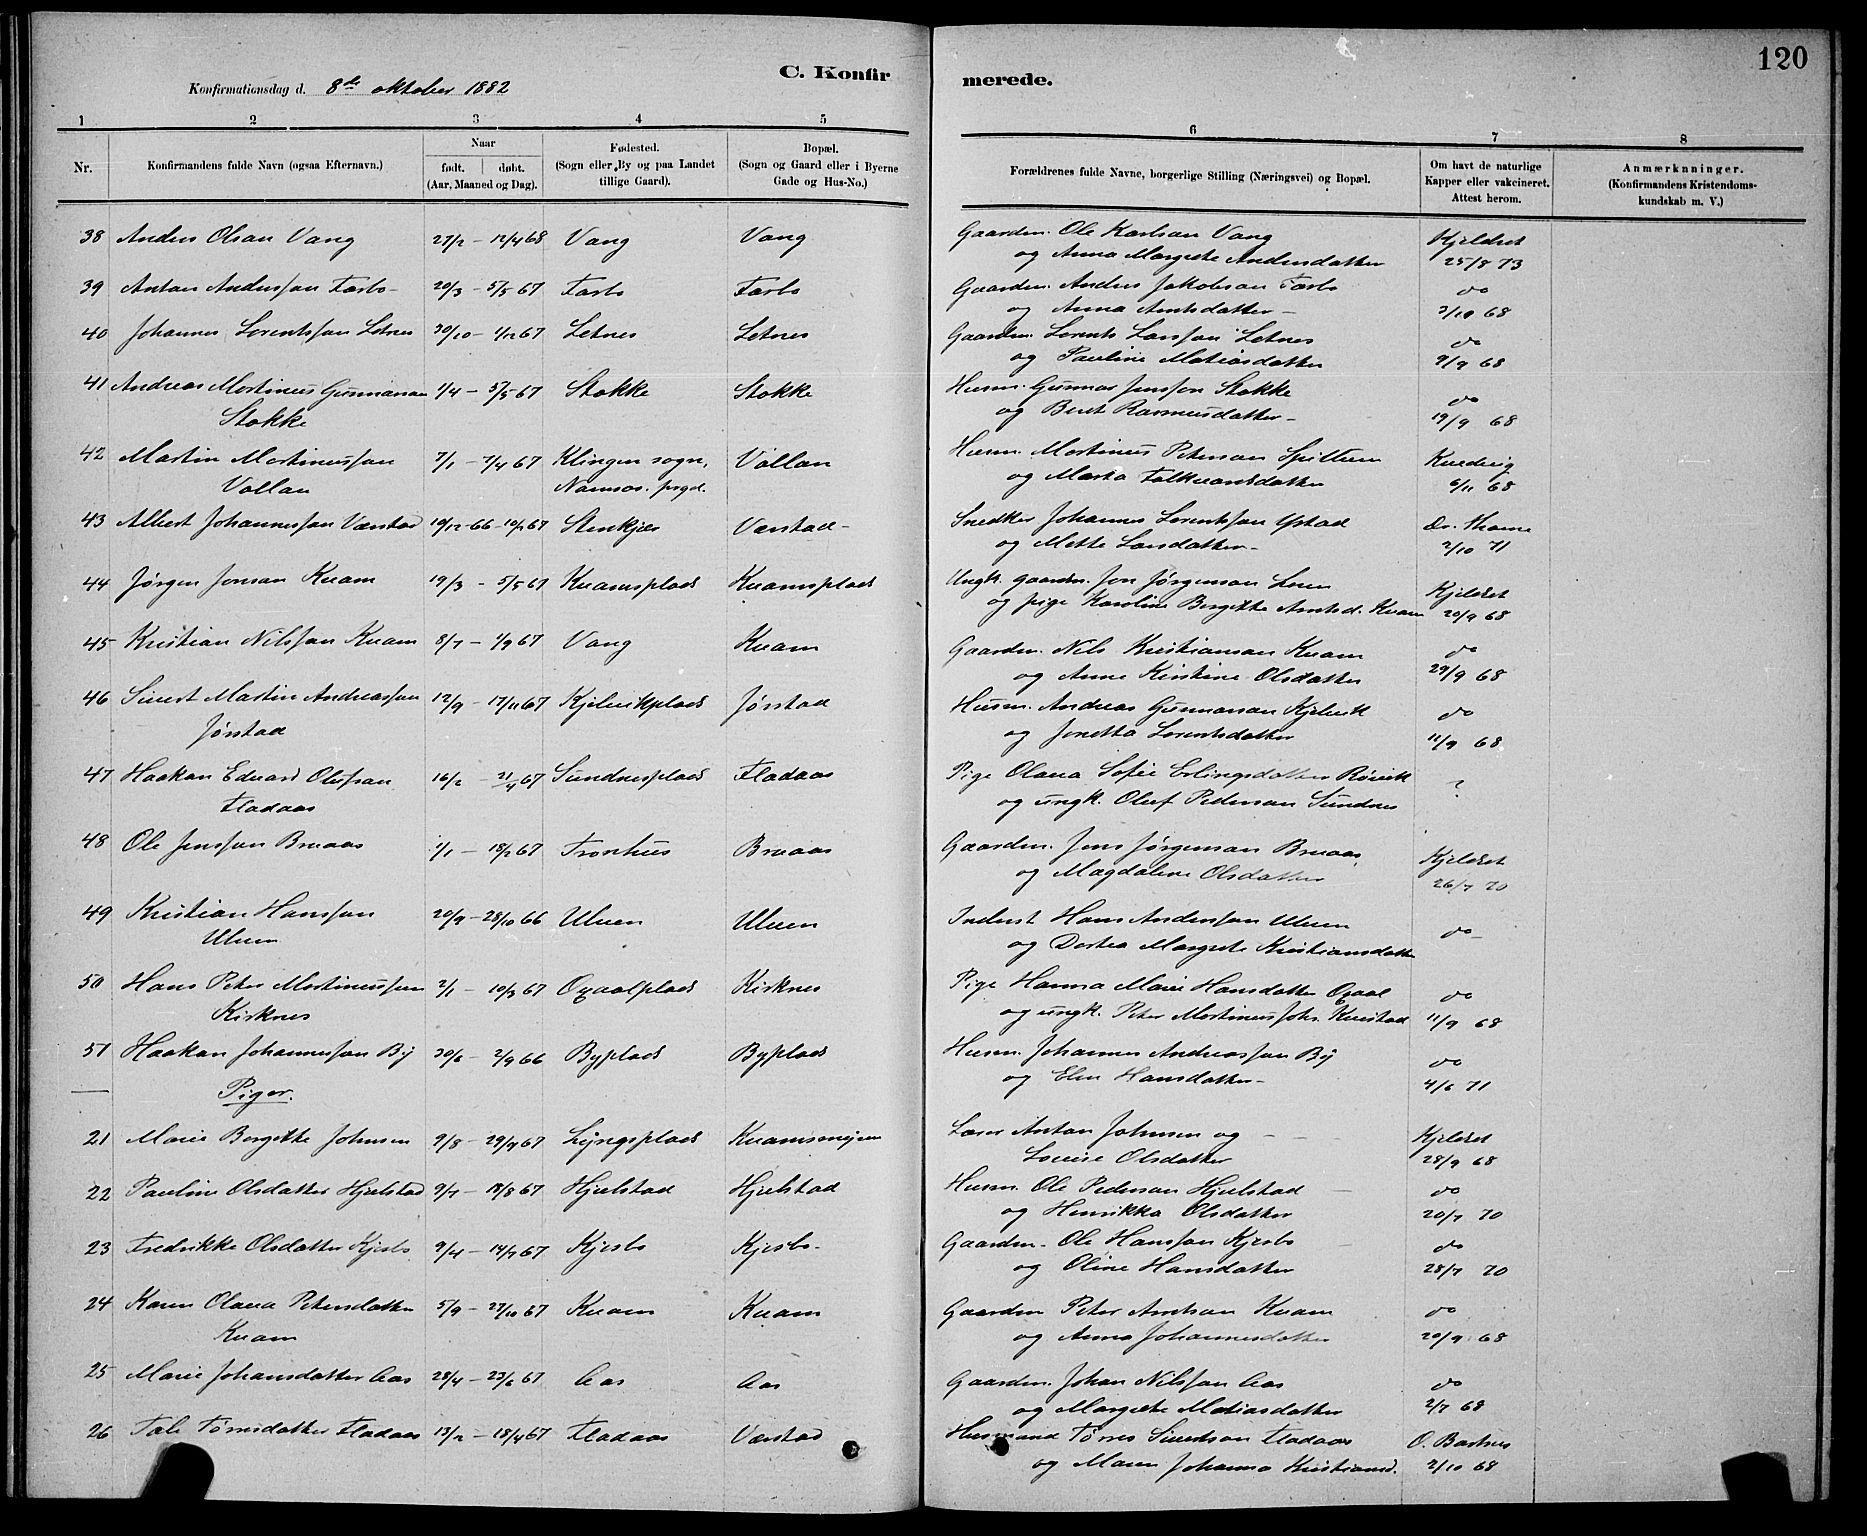 120
C. Konfirmerede.
Konfirmationsdag d. 8de oktober 1882
1 2 3 4 5 6 7 8
Nr. Konfirmandens fulde Navn (ogsaa Efternavn). Naar født. døbt. (Aar, Maaned og Dag). Fødested. (Sogn eller By og paa Landet tillige Gaard). Bopæl. (Sogn og Gaard eller i Byerne Gade og Hus-No.) Forældrenes fulde Navne, borgerlige Stilling (Næringsvei) og Bopæl. Om havt de naturlige Kapper eller vakcineret. Attest herom. Anmærkninger. (Konfirmandens Kristendomskundskab m. V.)
38 Anders Olsen Vang 27/2 – 12/4 68 Vang Vang Gaardm. Ole Karlsen Vang Kjeldset
og Anna Margrete Andersdatter 25/8 73
39 Anton Anderssen Tarbo 20/3 – 5/5 67 Tarbo Tarbo Gaardm. Anders Jakobsen Tarbo do
og Anna Arntsdatter – 3/10 68
40 Johannes Lorentssen Letnes 30/10 – 1/12 67 Letnes Letnes Gaardm. Lorents Larssen Letnes do
og Pauline Matiasdatter 9/9 68
41 Andreas Mortinus Gunnarsen 1/4 – 5/5 67 Stokke Stokke Husm. Gunnar Jenssen Stokke do
Stokke og Beret Rasmusdatter – 19/9 68
42 Martin Mortinussen 7/1 – 7/4 67 Klingen sogn, Vollan Husm. Mortinus Petersen Spillum
Vollan Namsos prgd. og Marta Falkvardsdatter 6/11 68
43 Albert Johannessen Værstad 19/12 66 – 10/2 67 Stenkjær Værstad – Snedker Johannes Lorentssen Ystad Dr.
og Mette Larsdatter – 2/10 71
44 Jørgen Jonsen Kvam 19/3 – 5/5 67 Kvamsplads Kvamsplads Ungk. gaardm. Jon Jørgensen Kjeldset
og pige Karoline Bergitte Arntsd. Kvam 20/9 68
45 Kristian Nilssen Kvam 8/7 – 1/9 67 Vang Kvam Gaardm. Nils Kristiansen Kvam do
og Anne Kirstine Olsdatter 29/9 68
46 Sivert Martin Andreassen 12/9 – 17/11 67 Kjelvikplads Jørstad Husm. Andreas Gunnarsen Kjelvik do
Jørstad og Jonetta Lorentsdatter 11/9 68
47 Haakon Edvard Olufsen 16/2 – 21/4 67 Sundnesplads Fladaas Pige Olava Sofie Erlingsdatter Røvik ?
Fladaas og ungk. Oluf Pedersen Sundnes
48 Ole Jenssen Bruaas 1/1 – 18/2 67 Tronhus Bruaas Gaardm. Jens Jørgensen Bruaas Kjeldset
og Magdalene Olsdatter 26/7 70
49 Kristian Hanssen 20/9 – 28/10 66 Ulven Ulven Inderst Hans Anderssen Ulven do –
Ulven og Dortea Margrete Kristiansdatter
50 Hans Peter Mortinussen 2/1 – 10/3 67 Oxaalplads Kirknes Pige Hanna Marie Hansdatter Oxaal do
Kirknes og ungk. Peter Mortinus Johs. Kvistad 11/9 68
51 Haakon Johannessen By 30/6 – 2/9 66 Byplads Byplads Husm. Johannes Andreassen By do
og Elen Hansdatter – 4/6 71
Piger.
21 Marie Bergitte Johnsen 9/8 – 29/9 67 Lyngsplads Kvamsmyren Lærer Anton Johnsen og Kjeldset
Lovise Olsdatter 28/9 68
22 Pauline Olsdatter Hjelstad 9/7 – 18/8 67 Hjelstad Hjelstad Husm. Ole Pedersen Hjelstad do
og Henrikka Olsdatter 20/7 70
23 Fredrikke Olsdatter Kjesbo 9/4 – 14/7 67 Kjesbo Kjesbo – Gaardm. Ole Hanssen Kjesbo do
og Oline Hansdatter 28/7 70
24 Karen Olava Petersdatter 5/9 – 27/10 67 Kvam Kvam Gaardm. Peter Arntsen Kvam do
Kvam og Anna Johannesdatter 20/9 68
25 Marie Johansdatter Aas 28/4 – 23/6 67 Aas Aas Gaardm. Johan Nilssen Aas do
og Margrete Matiasdatter 2/7 68
26 Tale Tørrisdatter Fladaas 13/2 – 18/4 67 Fladaas Værstad Husmand Tørres Sivertsen Fladaas O. Bartnes
og Maren Johanna Kristiansd. 2/10 68